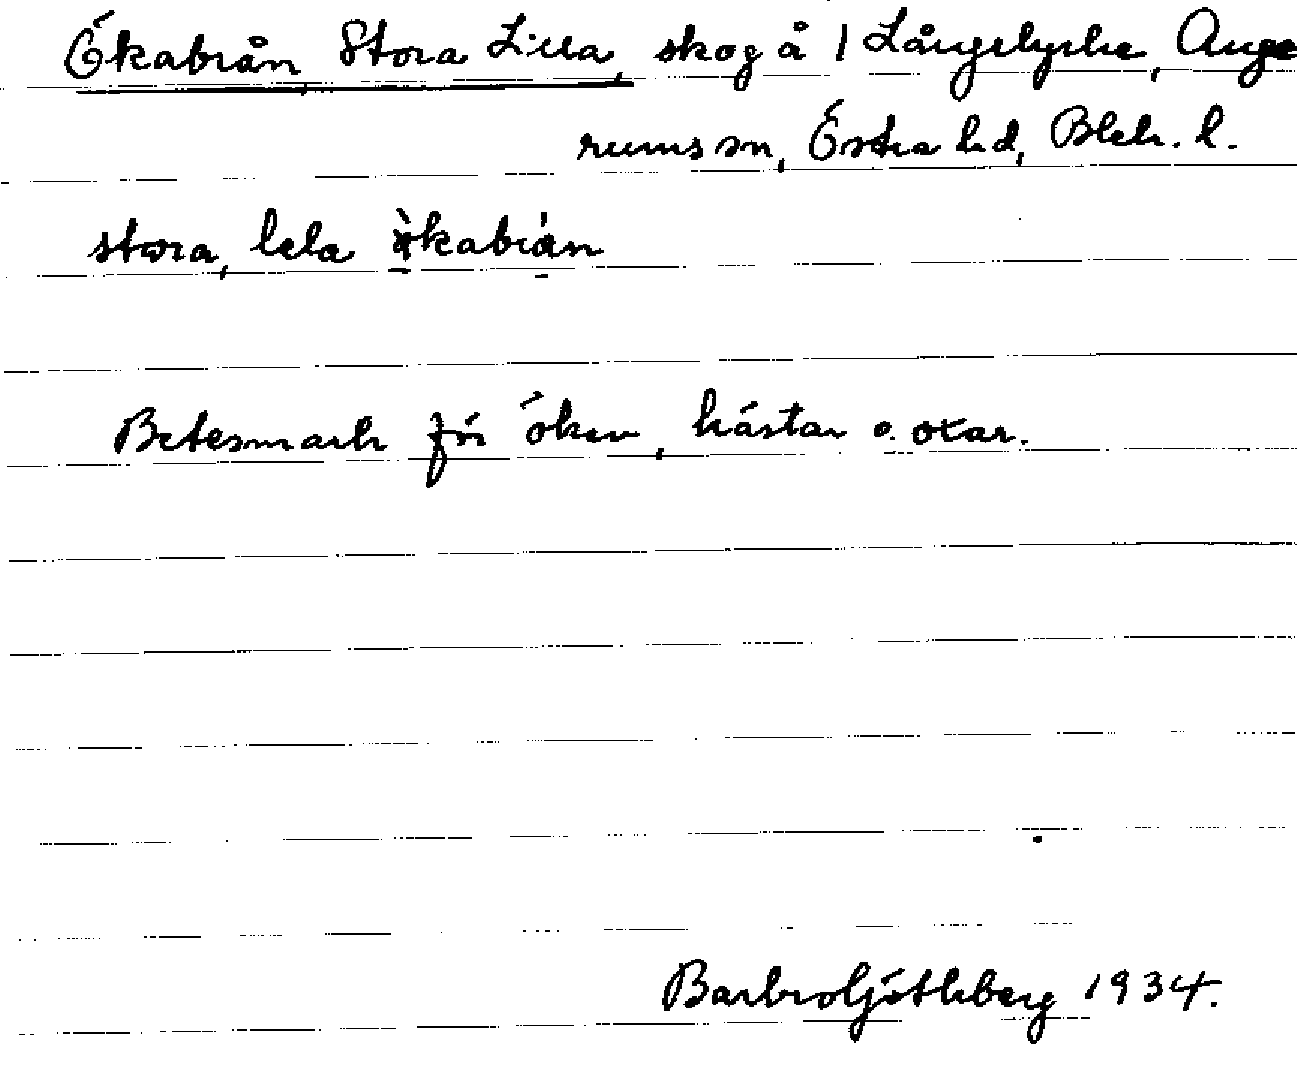 Ökabrån, Stora Lilla, skog å 1 Långelycke, Ange
rums sn, Östra hd, Blek. l.
stora, lela ökabrån
Betesmark för öken, hästar o. oxar.
Barbro Götheberg 1934.